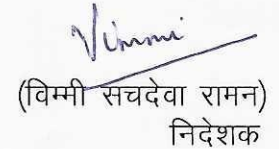 Vimmi
(विम्मी सचदेवा रामन)
निदेशक